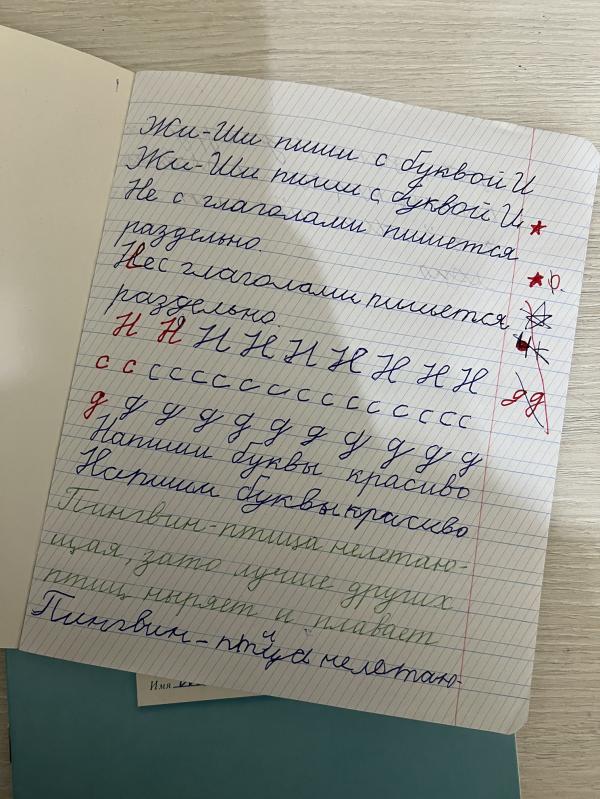 Жи-Ши пиши с буквой И
Жи-Ши пиши с буквой И.
Не с глаголами пишется
раздельно.
Нес глаголами пишется
раздельно.
Н Н Н Н Н Н Н Н Н
с с с с с с с с с с с с с с с с
д д д д д д д д д д
Напиши буквы красиво
Напиши буквы красиво
Пингвин-птица нелетаю-
щая, зато лучше других
птиц ныряет и плавает
Пингвин-птица нелетаю-
Имя